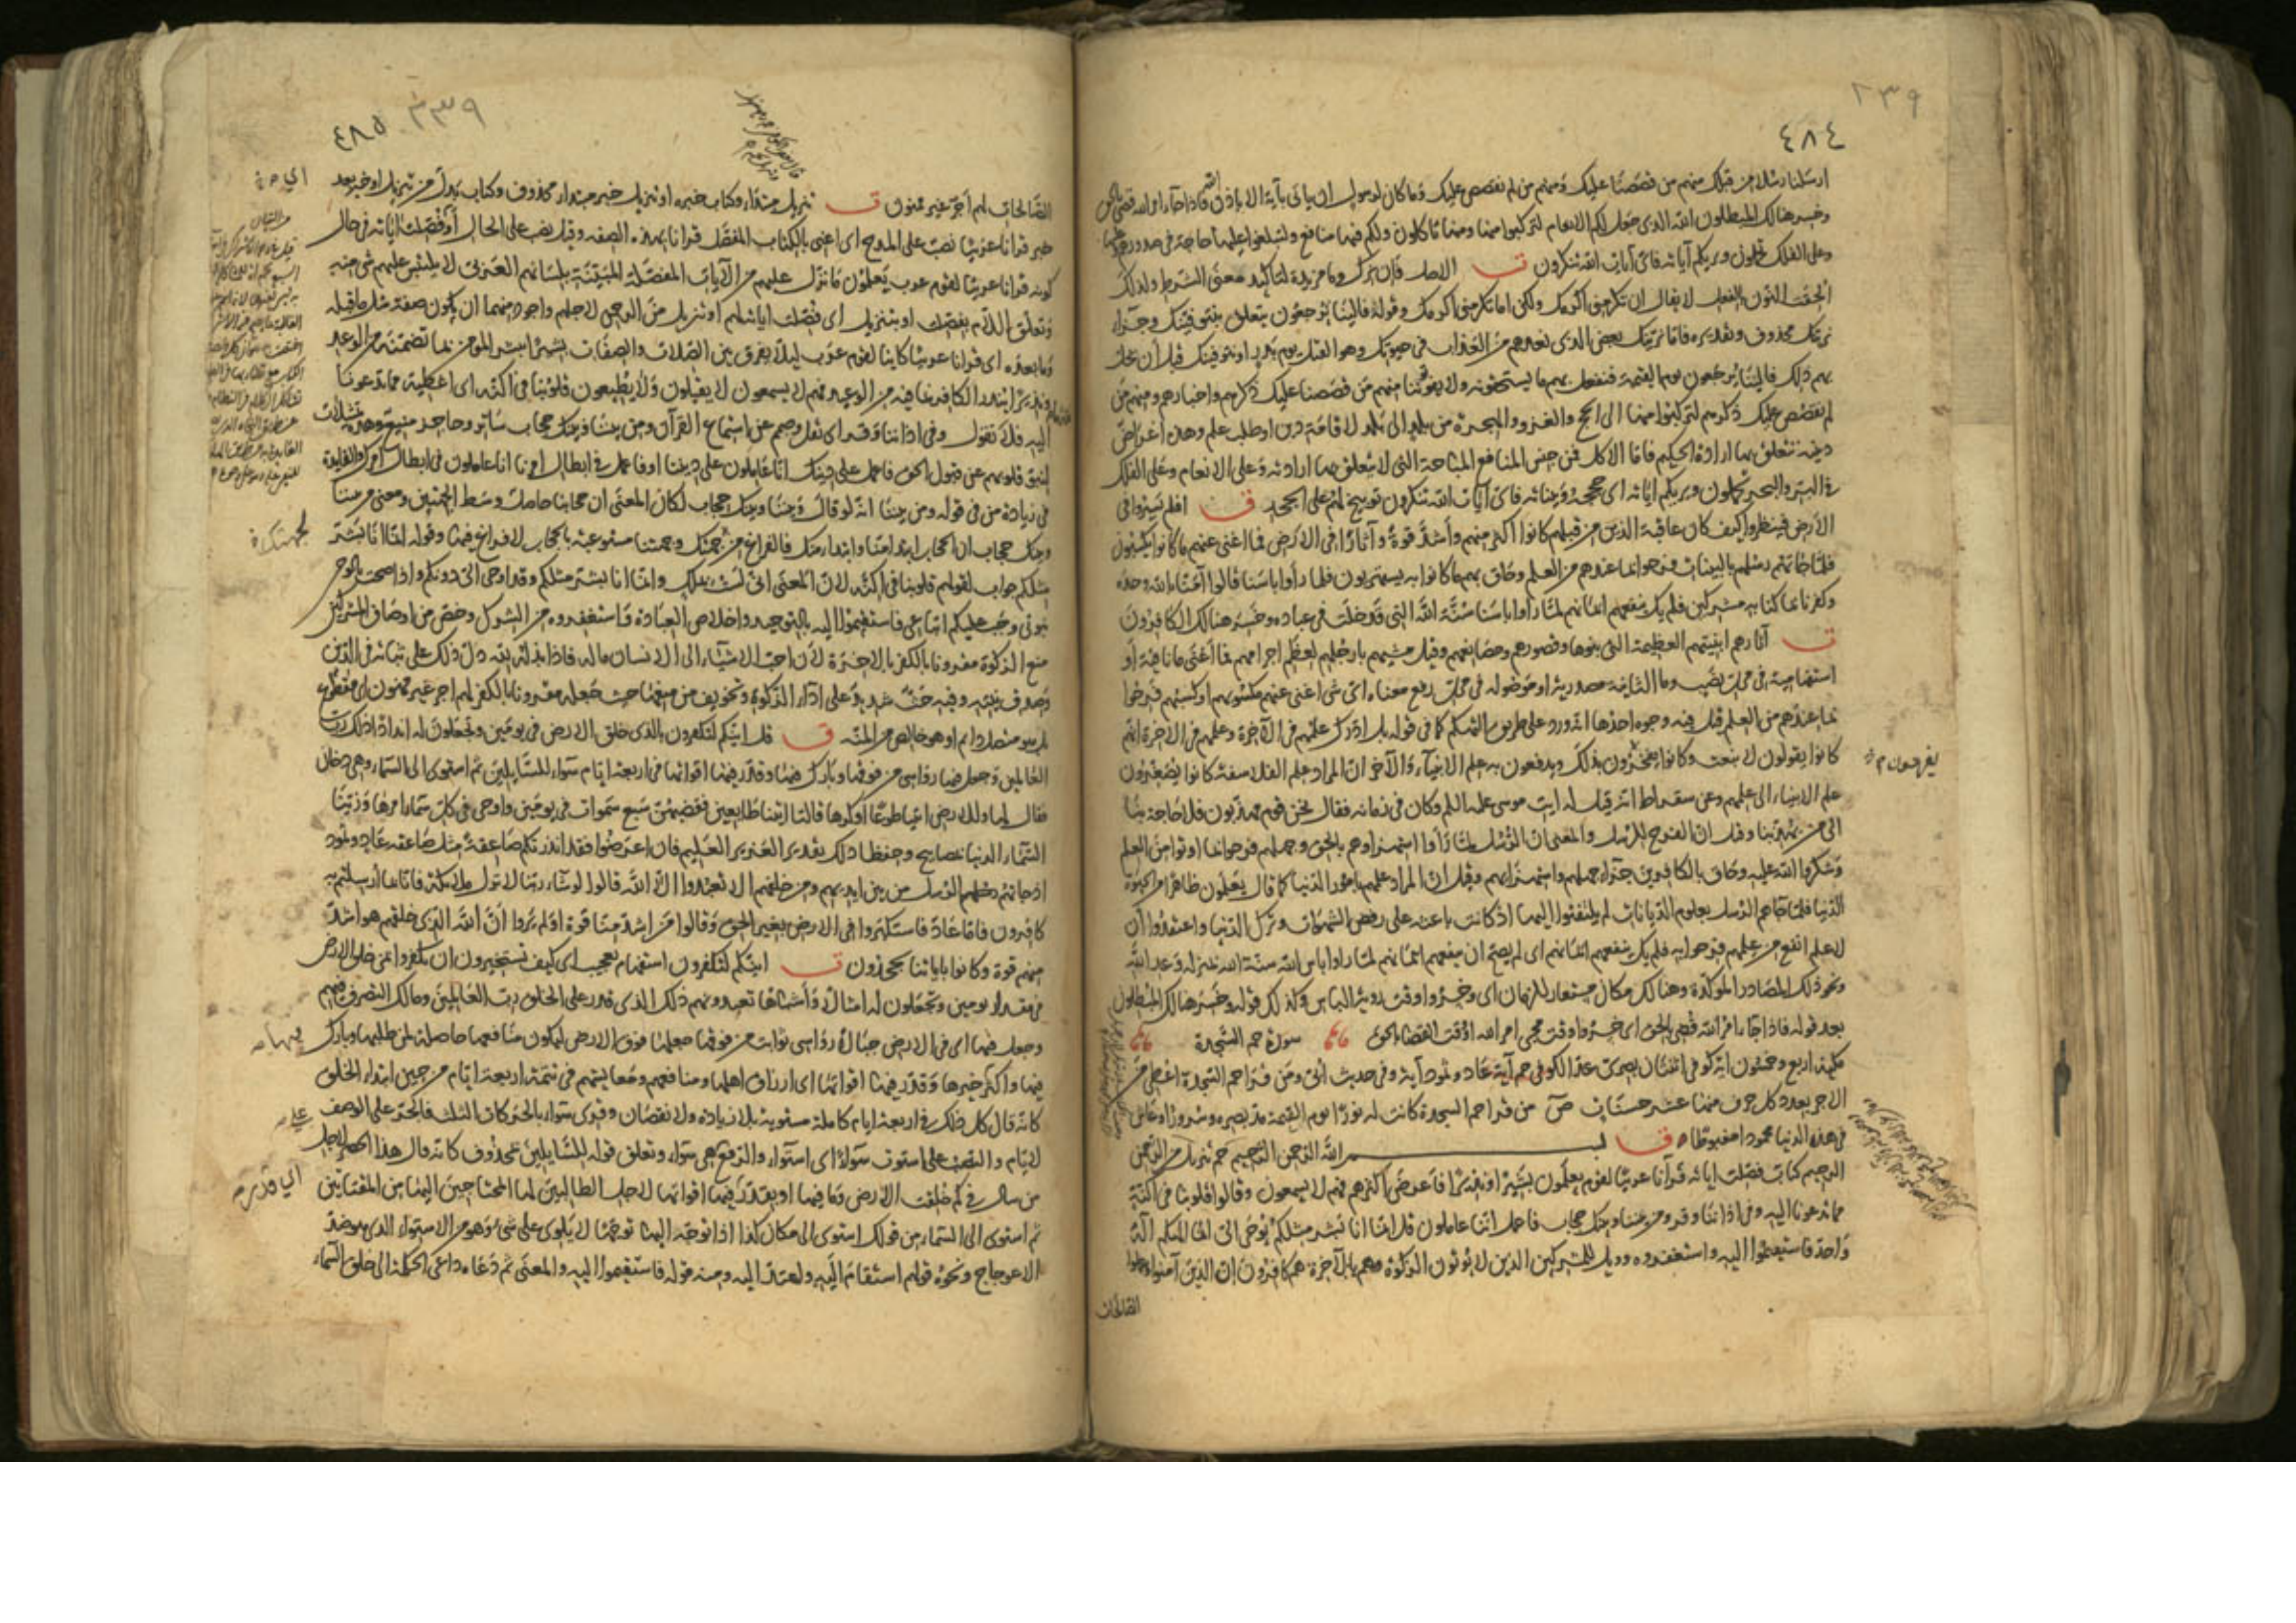 ٤٨٤
ارسلنا رسلا من قبلك منهم من قصصنا عليك ومنهم من لم نقصص عليك وما كان لرسول ان ياتى بآية الا باذن الله فاذا جاء امر الله قضى بالحق
وخسر هنالك المبطلون الله الذى جعل لكم الانعام لتركبوا منها ومنها تاكلون ولكم فيها منافع ولتبلغوا عليها حاجة فى صدوركم وعليها
وعلى الفلك تحملون ويريكم آياته فاى آيات الله تنكرون ت الاصل فان نرك وما مزيدة لتاكيد معنى الشرط ولذلك
الحقت النون بالفعل لا يقال ان تكرمنى اكرمك ولكن اما تكرمنى اكرمك وقوله فالينا يرجعون يتعلق بنتوفينك وجزاء
نرينك محذوف وتقديره فاما نرينك بعض الذى نعدهم من العذاب فى حيوتك وهو القتل يوم بدر او نتوفينك قبل ان يحل
بهم ذلك فالينا يرجعون يوم القيمة فنفعل بهم ما يستحقونه ولا يفوتنا منهم من قصصنا عليك ذكرهم واخبارهم ومنهم من
لم نقصص عليك ذكرهم لتركبوا منها الى الحج والغزو والهجرة من بلد الى بلد لاقامة دين او طلب علم وهذه اغراض
دينية تتعلق بها ارادة الحكيم فاما الاكل فمن جنس المنافع المباحة التى لا يتعلق بها ارادته وعلى الانعام وعلى الفلك
فى البر والبحر تحملون ويريكم آياته اى حججه وبيناته فاى آيات الله تنكرون توبيخ لهم على الجحد ق افلم يسيروا فى
الارض فينظروا كيف كان عاقبة الذين من قبلهم كانوا اكثر منهم وأشد قوة وآثارا فى الارض فما اغنى عنهم ما كانوا يكسبون
فلما جاءتهم رسلهم بالبينات فرحوا بما عندهم من العلم وحاق بهم ما كانوا به يستهزؤن فلما رأوا باسنا قالوا آمنا بالله وحده
وكفرنا بما كنا به مشركين فلم يك ينفعهم ايمانهم لما رأوا باسنا سنة الله التى قد خلت فى عباده وخسر هنالك الكافرون
ت آثارهم ابنيتهم العظيمة التى بنوها وقصورهم ومصانعهم وقيل مشيهم بارجلهم لعظم اجرامهم فما اغنى ما نافية أو
استفهامية فى محل نصب وما الثانية مصدرية او موصولة فى محل رفع معناه اى شىء اغنى عنهم مكسوبهم او كسبهم فرحوا
بما عندهم من العلم قيل فيه وجوه احدها انه ورد على طريق التهكم كما فى قوله بل ادارك علمهم فى الآخرة وعلمهم فى الاخرة انهم
كانوا يقولون لا نبعث وكانوا يفرحون بذلك ويدفعون به علم الانبياء والآخر ان المراد علم الفلاسفة كانوا يصغرون
يفرحون
علم الانبياء الى علمهم وعن سقراط انه قيل له ايت موسى عليه السلم وكان فى زمانه فقال نحن قوم مهذبون فلا حاجة بنا
الى من يهذبنا وقيل ان الفرح للرسل والمعنى ان الرسل لما رأوا استهزاءهم بالحق وجهلهم فرحوا بما اوتوا من العلم
وشكروا الله عليه وحاق بالكافرين جزاء جهلهم واستهزائهم وقيل ان المراد علمهم بامور الدنيا كما قال يعلمون ظاهرا من الحيوة
الدنيا فلما جاءهم الرسل بعلوم الديانات لم يلتفتوا اليها اذ كانت باعثة على رفض الشهوات وترك الدنيا واعتقدوا أن
لا علم انفع من علمهم فرحوا به فلم يك ينفعهم ايمانهم اى لم يصح ان ينفعهم ايمانهم لما رأوا باس الله سنة الله بمنزلة وعد الله
ونحو ذلك المصادر المؤكدة وهنالك مكان مستعار للزمان اى وخسروا وقت رؤية الباس وكذلك قوله وخسر هنالك المبطلون
بعد قوله فاذا جاء امر الله قضى بالحق اى خسروا وقت مجىء امر الله او وقت القضاء بالحق سورة حم السجدة
مكية اربع وخمسون آية كوفى اثنتان بصرى عد الكوفى حم آية عاد وثمود آية وفى حديث ابى ومن قرأ حم السجدة اعطى من
الاجر بعدد كل حرف منها عشر حسنات ص من قرأ حم السجدة كانت له نورا يوم القيمة مد بصره وسرورا وعاش
فى هذه الدنيا محمودا مغبوطا ق بسم الله الرحمن الرحيم حم تنزيل من الرحمن
الرحيم كتاب فصلت آياته قرآنا عربيا لقوم يعلمون بشيرا ونذيرا فأعرض اكثرهم فهم لا يسمعون وقالوا قلوبنا فى اكنة
مما تدعونا اليه وفى اذاننا وقر ومن بيننا وبينك حجاب فاعمل اننا عاملون قل انما انا بشر مثلكم يوحى الى انما الهكم اله
واحد فاستقيموا اليه واستغفروه وويل للمشركين الذين لا يؤتون الزكوة وهم بالآخرة هم كافرون ان الذين آمنوا وعملوا
الصالحات
٤٨٥
الصالحات لهم أجر غير ممنون ت تنزيل مبتداء وكتاب خبره او تنزيل خبر مبتداء محذوف وكتاب بدل من تنزيل او خبر بعد
خبر قرانا عربيا نصب على المدح اى اعنى بالكتاب المفصل قرانا بهذه الصفه وقيل نصب على الحال أى فصلت اياته فى حال
كونه قرانا عربيا لقوم عرب يعلمون ما نزل عليهم من الآيات المفصلة المبينة بلسانهم العربى لا يلتبس عليهم شىء منه
وتعلق اللام بفصلت او بتنزيل اى فصلت اياته لهم او تنزيل من الرحمن لاجلهم واجود منهما ان يكون صفة مثل ما قبله
وما بعده اى قرانا عربيا كاينا لقوم عرب ليلا يفرق بين الصلات والصفات بشيرا يبشر المؤمن بما تضمنته من الوعد
ونذيرا ينذر الكافر بما فيه من الوعيد فهم لا يسمعون لا يقبلون ولا يطيعون قلوبنا فى اكنة اى اغطية مما تدعونا
اليه فلا نفقه ما تقول وفى اذاننا وقر اى ثقل وصمم عن استماع القرآن ومن بيننا وبينك حجاب ساتر وحاجز منيع وهذه تمثيلات
لنبو قلوبهم عن قبول الحق فاعمل على دينك اننا عاملون على ديننا او فاعمل فى ابطال امرنا اننا عاملون فى ابطال امرك والفايدة
فى زيادة من فى قوله ومن بيننا انه لو قال وبيننا وبينك حجاب لكان المعنى ان حجابا حاصل وسط الجهتين ومعنى من بيننا
وبينك حجاب ان الحجاب ابتدأ منا وابتدأ منك فالفراغ من جهتك وجهتنا مستوعبة بالحجاب لا فراغ فيها وقوله انما أنا بشر
مثلكم جواب لقولهم قلوبنا فى اكنة لان المعنى انى لست بملك وانما انا بشر مثلكم وقد اوحى الى دونكم واذا صحت بالوحى
نبوتى وجب عليكم اتباعى فاستقيموا اليه بالتوحيد واخلاص العبادة واستغفروه من الشرك وخص من اوصاف المشركين
منع الزكوة مقرونا بالكفر بالاخرة لان احب الاشياء الى الانسان ماله فاذا بذله دل ذلك على ثباته فى الدين
وصدق نيته وفيه حث شديد على اداء الزكوة وتخويف من منعها حيث جعله مقرونا بالكفر لهم اجر غير ممنون اى مقطوع
بل هو متصل دايم او هو خالص من المنة ق قل اينكم لتكفرون بالذى خلق الارض فى يومين وتجعلون له اندادا ذلك رب
العالمين وجعل فيها رواسى من فوقها وبارك فيها وقدر فيها اقواتها فى اربعة ايام سواء للسايلين ثم استوى الى السماء وهى دخان
فقال لها وللارض ائتيا طوعا او كرها قالتا اتينا طايعين فقضيهن سبع سموات فى يومين واوحى فى كل سماء امرها وزينا
السماء الدنيا بمصابيح وحفظا ذلك تقدير العزيز العليم فان اعرضوا فقل انذرتكم صاعقة مثل صاعقة عاد وثمود
اذ جاءتهم الرسل من بين ايديهم ومن خلفهم الا تعبدوا الا الله قالوا لو شاء ربنا لانزل ملائكة فانا بما أرسلتم به
كافرون فاما عاد فاستكبروا فى الارض بغير الحق وقالوا من اشد منا قوة اولم يروا أن الله الذى خلقهم هو اشد
منهم قوة وكانوا باياتنا يجحدون ت اينكم لتكفرون استفهام تعجب اى كيف تستجيزون ان تكفروا بمن خلق الارض
فى مقدار يومين وتجعلون له امثالا وأشباها تعبدونهم ذلك الذى قدر على الخلق رب العالمين ومالك التصرف فيهم
وجعل فيها اى فى الارض جبالا رواسى ثوابت من فوقها جعلها فوق الارض ليكون منافعها حاصلة لمن طلبها وبارك
فيها واكثر خيرها وقدر فيها اقواتها اى ارزاق اهلها ومنافعهم ومعايشهم فى تتمة اربعة ايام من حين ابتداء الخلق
كانه قال كل ذلك فى اربعة ايام كاملة مستوية بلا زيادة ولا نقصان وقرى سواء بالحركات الثلث فالجر على الوصف
لايام والنصب على استوت سواء اى استواء والرفع هى سواء وتعلق قوله للسايلين بمحذوف كانه قال هذا الحصر لاجل
من سال فى كم خلقت الارض وما فيها او بقدر فيها اقواتها لاجل الطالبين لها المحتاجين اليها من المقتاتين
ثم استوى الى السماء من قولك استوى الى مكان كذا اذا توجه اليها توجها لا يلوى على شىء وهو من الاستواء الذى هو ضد
الاعوجاج ونحوه قولهم استقام اليه وامتد اليه ومنه قوله فاستقيموا اليه والمعنى ثم دعاه داعى الحكمة الى خلق السماء